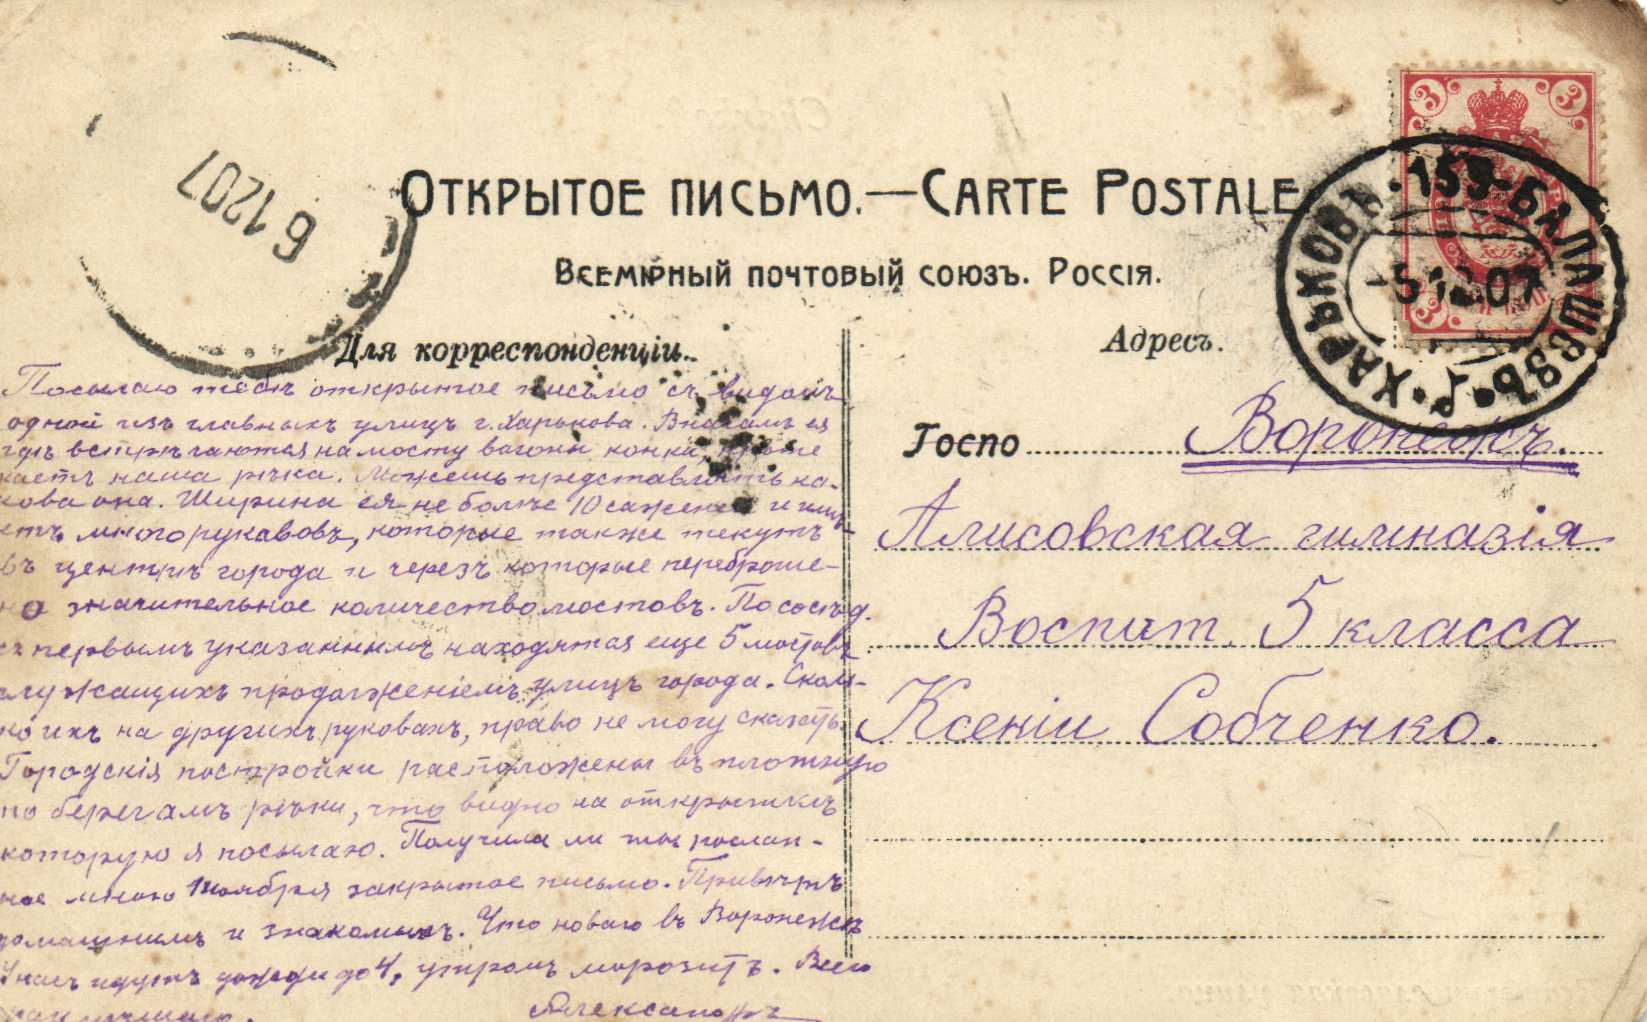 ОТКРЫТОЕ ПИСЬМО.—CARTE POSTALE
ВСЕМІРНЫЙ ПОЧТОВЫЙ СОЮЗЪ. РОССІЯ.
6 12 07
3 3
3
ХАРЬКОВЪ · 153 · БАЛАШОВЪ
5 12 07
Для корреспонденціи.
Посылаю тебѣ открытое письмо съ видомъ
одной изъ главныхъ улицъ г. Харькова.
гдѣ встрѣчаются на мосту вагоны конки,
наша рѣчка. Можешь представлять ка-
кова она. Ширина ея не болѣе 10 саженей и имѣ-
етъ много рукавовъ, которые также текутъ
въ центрѣ города и черезъ которые переброше-
но значительное количество мостовъ. По сосѣд.
съ первымъ указаннымъ находятся еще 5 мостовъ
служащихъ продолженіемъ улицъ города. Сколь-
ко ихъ на другихъ руковахъ, право не могу сказать.
Городскія постройки расположены въ плотную
по берегамъ рѣчки, что видно на открыткѣ
которую я посылаю. Получила ли ты послан-
ное мною 1 ноября закрытое письмо. Привѣтъ
домашнимъ и знакомымъ. Что новаго въ Воронежѣ
У насъ идутъ дожди до 4, утромъ морозитъ. Всего
Александръ
Адресъ.
Госпо Воронежъ.
гимназія
Воспит. 5 класса
Ксеніи Собченко.